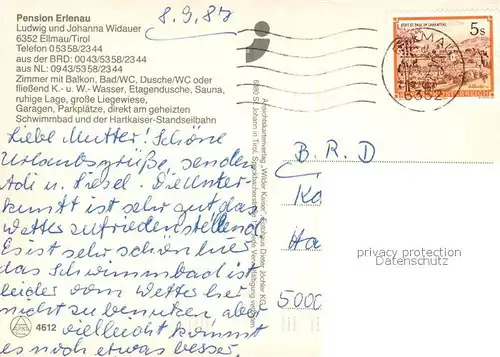 Pension Erlenau
Ludwig und Johanna Widauer
6352 Ellmau/Tirol
Telefon 0 53 58/23 44
aus der BRD: 00 43/53 58/23 44
aus NL: 09 43/53 58/23 44
Zimmer mit Balkon, Bad/WC, Dusche/WC oder
fließend K.- u. W.-Wasser, Etagendusche, Sauna,
ruhige Lage, große Liegewiese,
Garagen, Parkplätze, direkt am geheizten
Schwimmbad und der Hartkaiser-Standseilbahn
8.9.87
Liebe Mutter! Schöne
Urlaubsgrüße, senden
Adi u. Liesel. Die Unter-
kunft ist sehr gut das
Wetter zufriedenstellend
Es ist sehr schön hier
das Schwimmbad ist
leider vom Wetter her
nicht zu benutzen aber
vielleucht kommt
es noch etwas besser.
4612
Ansichtskartenverlag „Wilder Kaiser“, Fotohaus Dieter Jöchler KG.
6380 St. Johann in Tirol
5 S
6352
B. R. D
Ka
Ha
5000
privacy protection
Datenschutz